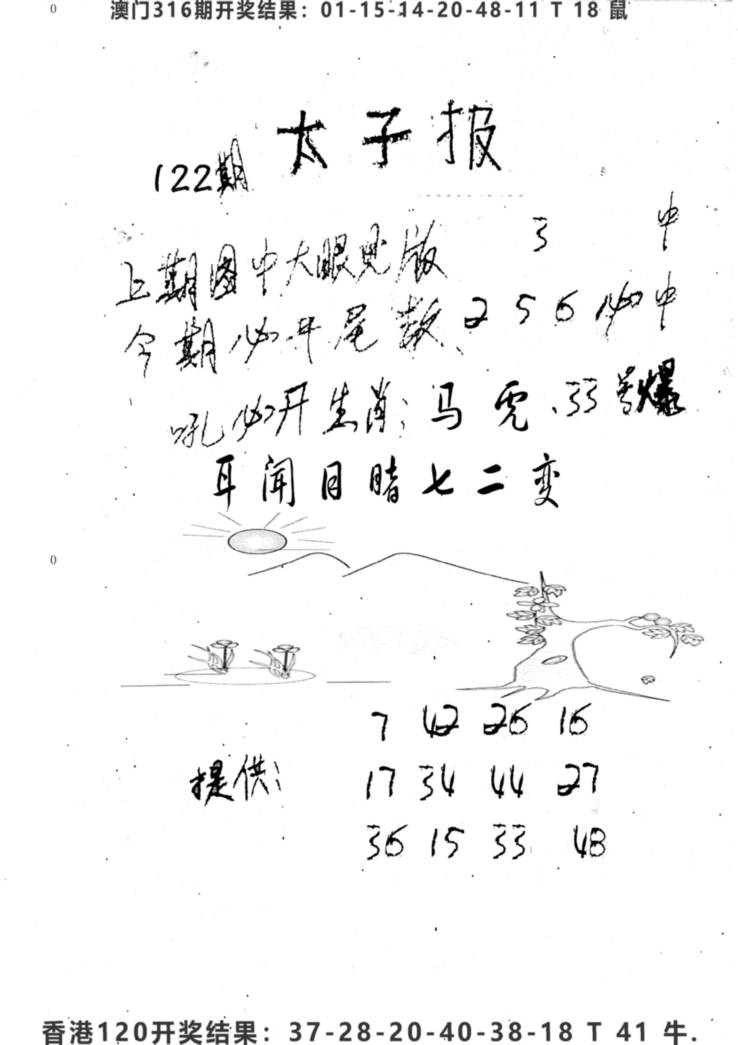 0
澳门316期开奖结果：01-15-14-20-48-11 T 18 鼠
太子报
122期
上期图中大眼见版 3 中
今期必开尾数、2 5 6 必中
吼必开生肖：马 虎、33号爆
耳闻目睹七二变
0
7 42 26 16
提供： 17 34 44 27
36 15 33 48
香港120开奖结果：37-28-20-40-38-18 T 41 牛.